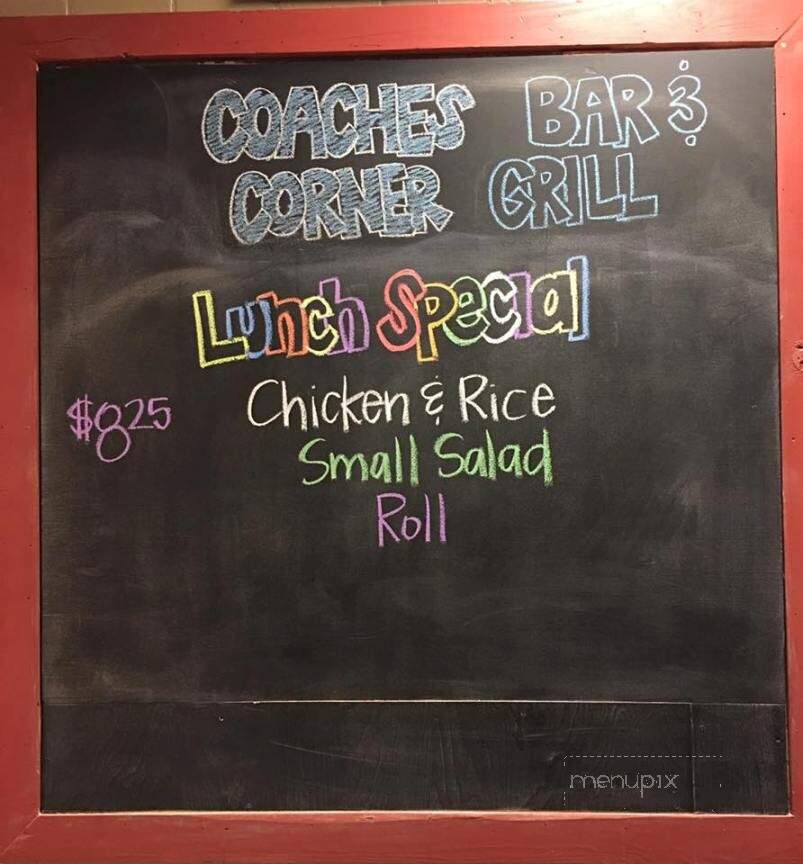 COACHES BAR &
CORNER GRILL
Lunch Special
$8.25 Chicken & Rice
Small Salad
Roll
menupix